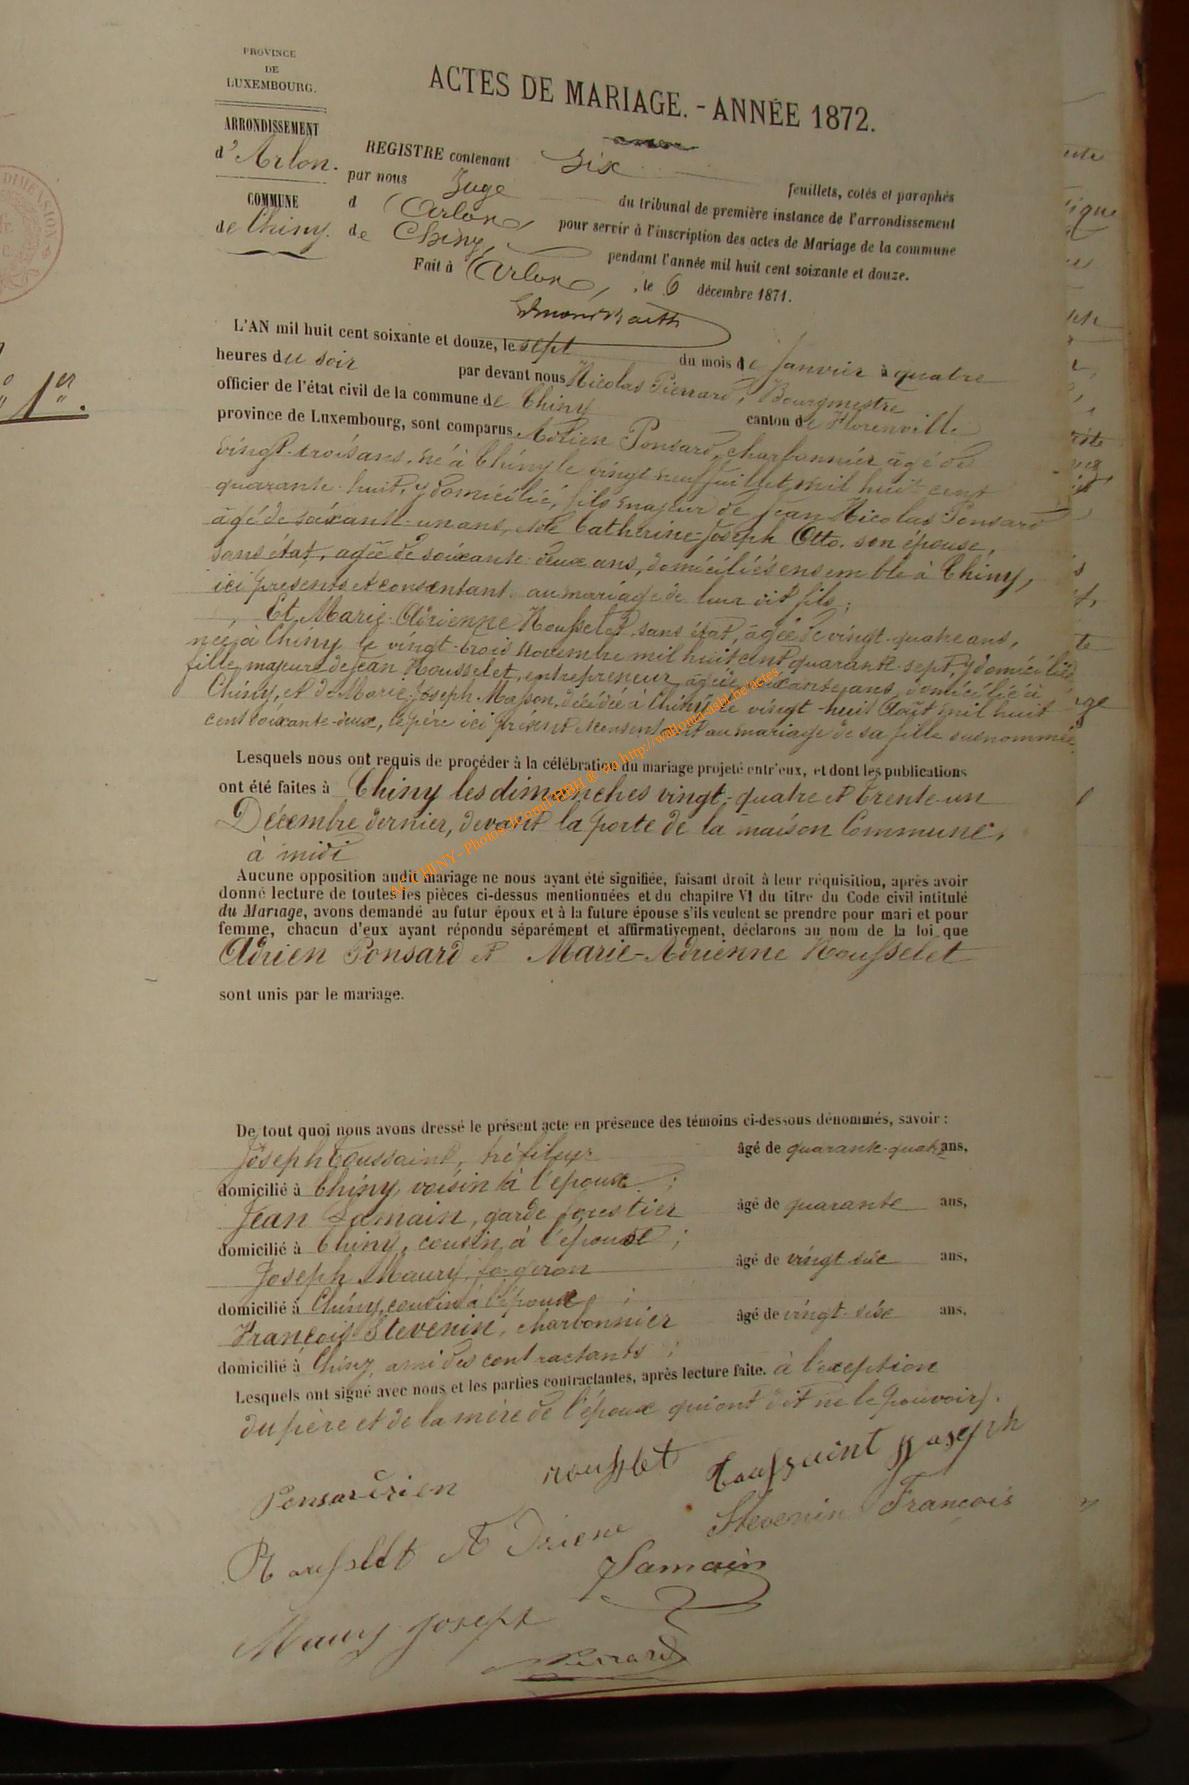 PROVINCE
DE
LUXEMBOURG.
ACTES DE MARIAGE. - ANNÉE 1872.
ARRONDISSEMENT
d'Arlon.
COMMUNE
de Chiny.
N° 1er.
REGISTRE contenant Six feuillets, cotés et paraphés
par nous Juge du tribunal de première instance de l'arrondissement
d Arlon, pour servir à l'inscription des actes de Mariage de la commune
de Chiny, pendant l'année mil huit cent soixante et douze.
Fait à Arlon, le 6 décembre 1871.
L'AN mil huit cent soixante et douze, le sept du mois de Janvier à quatre
heures du soir par devant nous Nicolas Pierrard, Bourgmestre
officier de l'état civil de la commune de Chiny canton de Florenville
province de Luxembourg, sont comparus Adrien Ponsard, charbonnier âgé de
vingt-trois ans, né à Chiny le vingt neuf juillet mil huit cent
quarante-huit, y domicilié, fils majeur de Jean Nicolas Ponsard
âgé de soixante-un ans, et de Catherine-Joseph Otto, son épouse,
sans état, agée de soixante-deux ans, domiciliés ensemble à Chiny,
ici présents et consentant au mariage de leur dit fils;
Et Marie-Adrienne Housselet, sans état, âgée de vingt-quatre ans,
née à Chiny le vingt-trois novembre mil huit cent quarante-sept, y domiciliée
fille majeure de Jean Housselet, entrepreneur, âgé de soixante ans, domicilié à
Chiny, et de Marie-Joseph Masson, décédée à Chiny le vingt-huit Août mil huit
cent soixante-deux, le père ici présent et consentant au mariage de sa fille susnommée.
Lesquels nous ont requis de procéder à la célébration du mariage projeté entr'eux, et dont les publications
ont été faites à Chiny les dimanches vingt-quatre et trente-un
Décembre dernier, devant la porte de la maison Commune,
à midi
Aucune opposition audit mariage ne nous ayant été signifiée, faisant droit à leur réquisition, après avoir
donné lecture de toutes les pièces ci-dessus mentionnées et du chapitre VI du titre du Code civil intitulé
du Mariage, avons demandé au futur époux et à la future épouse s'ils veulent se prendre pour mari et pour
femme, chacun d'eux ayant répondu séparément et affirmativement, déclarons au nom de la loi que
Adrien Ponsard et Marie-Adrienne Housselet
sont unis par le mariage.
De tout quoi nous avons dressé le présent acte en présence des témoins ci-dessous dénommés, savoir :
Joseph Toussaint, tréfileur âgé de quarante-quatre ans,
domicilié à Chiny, voisin à l'époux ;
Jean Lamain, garde forestier âgé de quarante ans,
domicilié à Chiny, cousin à l'épouse ;
Joseph Maury, forgeron âgé de vingt-six ans,
domicilié à Chiny, cousin à l'époux ;
François Stevenin, charbonnier âgé de vingt-six ans,
domicilié à Chiny, ami des contractants ;
Lesquels ont signé avec nous et les parties contractantes, après lecture faite. à l'exception
du père et de la mère de l'époux qui ont dit ne le pouvoir.
housslet Toussaint Joseph
Stevenin François
Lamain
Maury Joseph
Pierrard